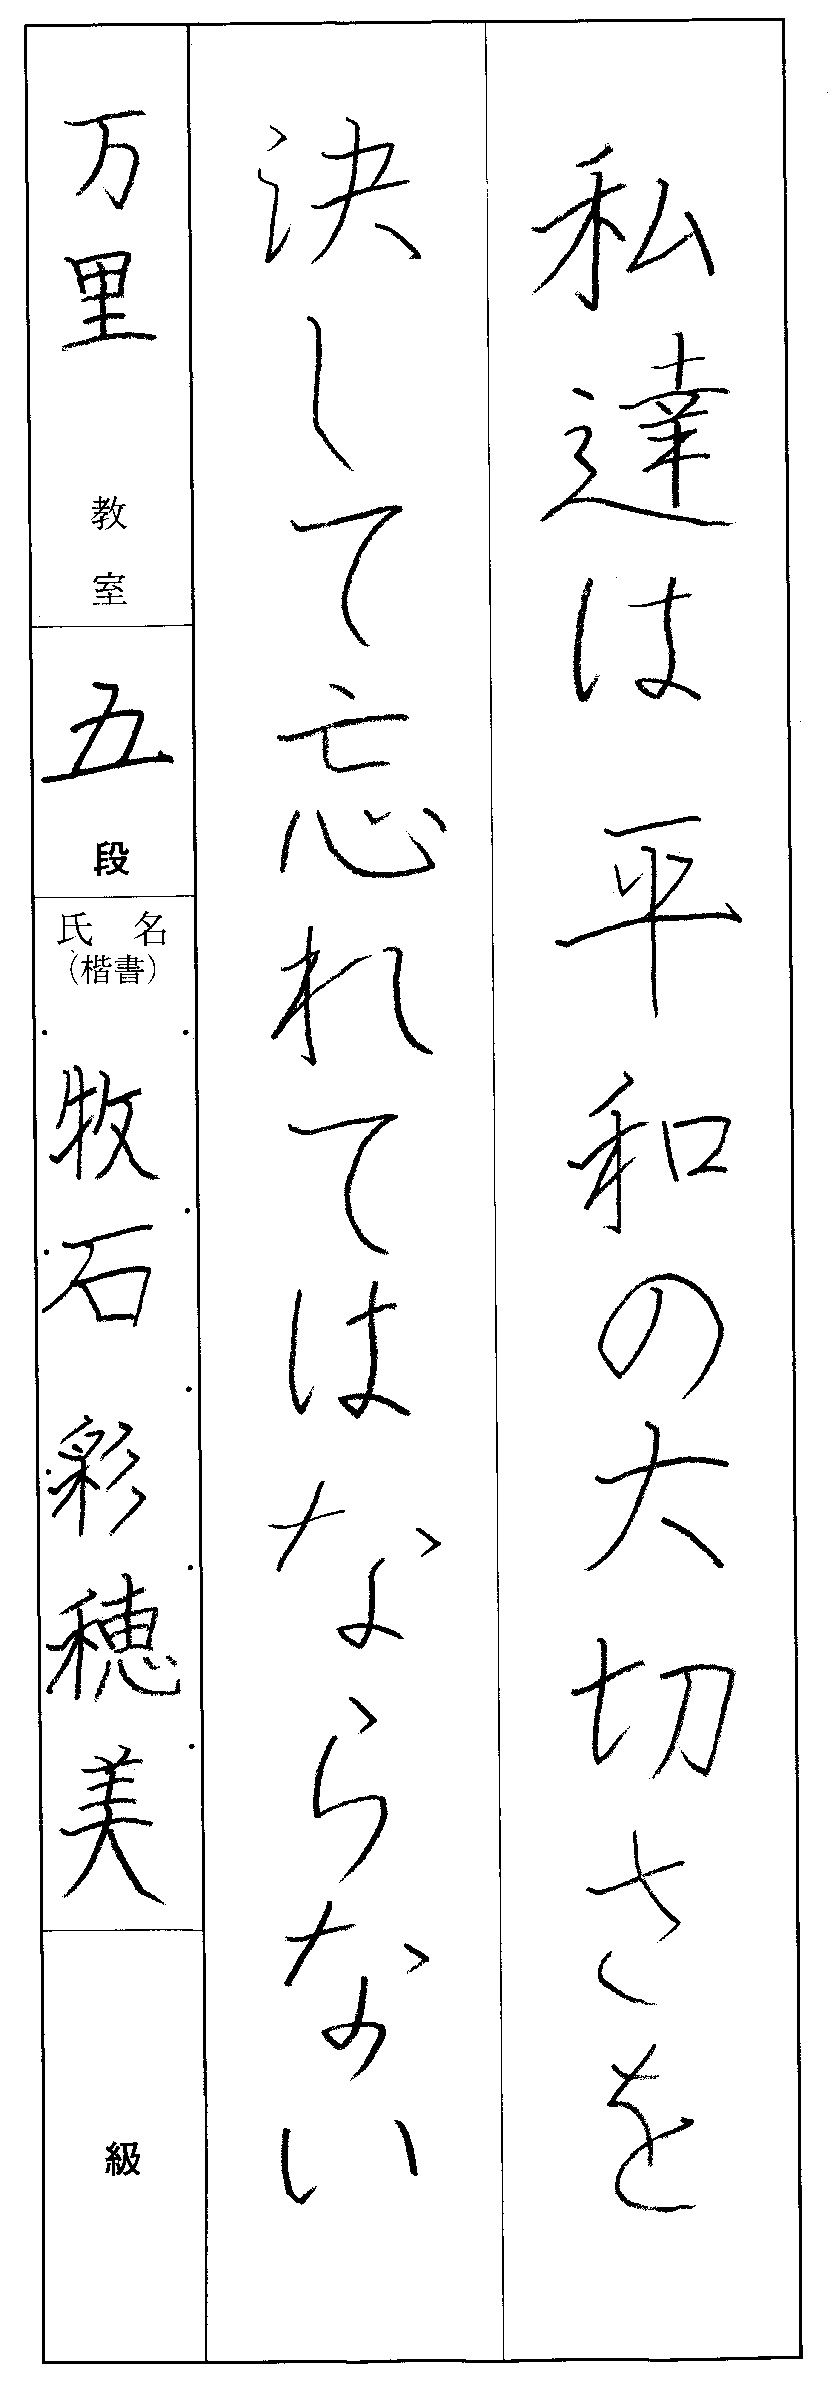 私達は平和の大切さを
決して忘れてはならない
万里教室
五段
氏名
（楷書）
牧石彩穂美
級